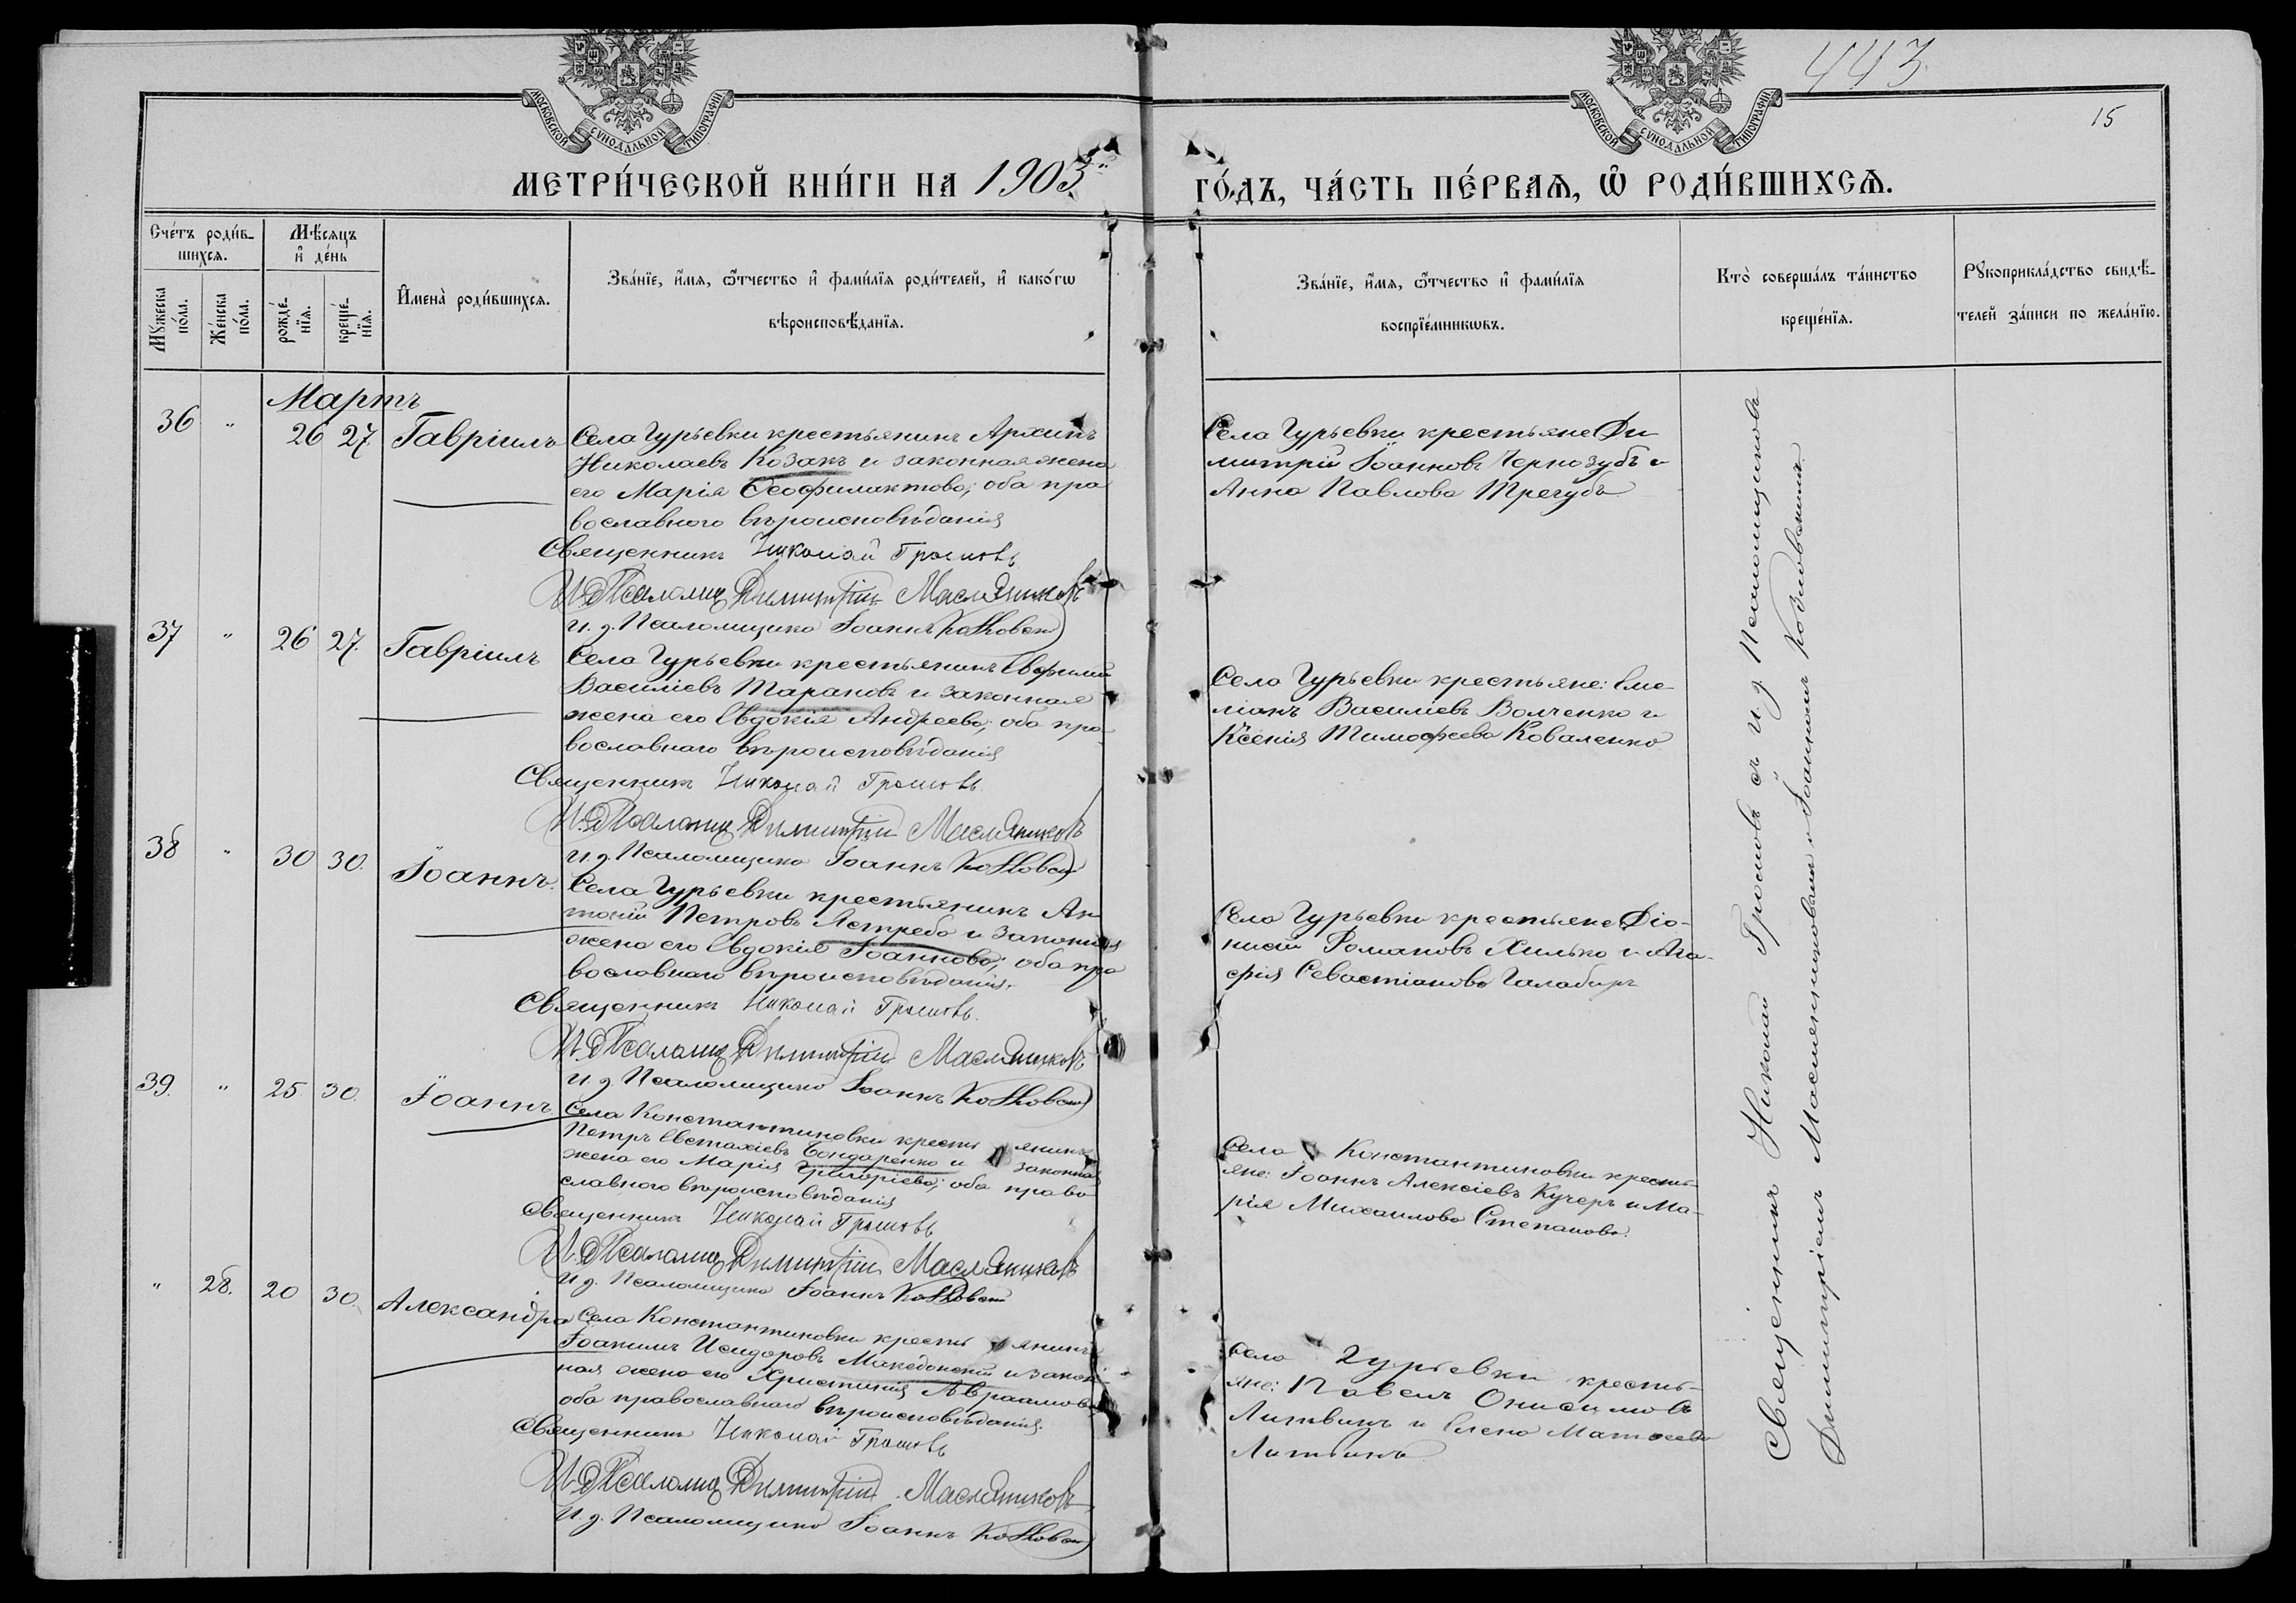 443
15
МОСКОВСКОЙ СѴНОДАЛЬНОЙ ТИПОГРАФІИ
МОСКОВСКОЙ СѴНОДАЛЬНОЙ ТИПОГРАФІИ
МЕТРИ́ЧЕСКОЙ КНИ́ГИ НА 1903й
ГО́ДЪ, ЧА́СТЬ ПЕ́РВАѦ, Ѡ РОДИ́ВШИХСѦ.
Сче́тъ роди́в-
шихсѧ.
Мꙋ́жеска по́ла.
Же́нска по́ла.
Мѣ́сѧцъ
и҆ де́нь
рожде́-
нїѧ.
креще́-
нїѧ.
И҆мена̀ роди́вшихсѧ.
Зва́нїе, и҆́мѧ, ѻ҆́тчество и҆ фами́лїѧ роди́телей, и҆ како́гѡ
вѣроисповѣ́данїѧ.
Зва́нїе, и҆́мѧ, ѻ҆́тчество и҆ фами́лїѧ
воспрїе́мникѡвъ.
Кто̀ соверша́лъ та́инство
креще́нїѧ.
Рꙋкоприкла́дство свидѣ́-
телей за́писи по жела́нїю.
Мартъ
36 " 26 27. Гавріилъ
Села Гурьевки крестьянинъ Архипъ
Николаевъ Козакъ и законная жена
его Марія Ѳеофилактова; оба пра
вославнаго вѣроисповѣданія
Священникъ Николай Громовъ
И. д. Псаломщ Димитрій Маслянниковъ
И. д. Псаломщика Іоаннъ
Села Гурьевки крестьяне Ди
митрій Іоанновъ Чернозубъ и
Анна Павлова Трегубъ
37 " 26 27. Гавріилъ
Села Гурьевки крестьянинъ Евфимій
Василіевъ Тарановъ и законная
жена его Евдокія Андреева; оба пра
вославнаго вѣроисповѣданія
Священникъ Николай Громовъ
И. д. Псаломщ Димитрій Маслянниковъ
И. д. Псаломщика Іоаннъ
Села Гурьевки крестьяне: Еме
ліанъ Василіевъ Волченко и
Ксенія Тимофеева Коваленко
38 " 30 30. Іоаннъ.
Села Гурьевки крестьянинъ Ан
тоній Петровъ Ястребъ и законная
жена его Евдокія Іоаннова; оба пра
вославнаго вѣроисповѣданія.
Священникъ Николай Громовъ.
И. д. Псаломщ Димитрій Маслянниковъ
И. д. Псаломщика Іоаннъ
Села Гурьевки крестьяне Діо-
нисій Романовъ Хилько и Ага-
фія Севастіанова Галабиръ
39. " 25 30. Іоаннъ
Села Константиновки кресть янинъ
Петръ Евстахіевъ Бондаренко и законная
жена его Марія Григоріева; оба право
славнаго вѣроисповѣданія
Священникъ Николай Громовъ
И. д. Псаломщ Димитрій Маслянниковъ
И. д. Псаломщика Іоаннъ
Села Константиновки кресть-
яне: Іоаннъ Алексіевъ Кучеръ и Ма-
рія Михаилова Степанова.
" 28. 20 30. Александра
Села Константиновки кресть янинъ
Іоакимъ Исидоровъ Македонскій и закон-
ная жена его Христинія Авраамова
оба православнаго вѣроисповѣданія.
Священникъ Николай Громовъ
И. д. Псаломщ Димитрій Маслянниковъ
И. д. Псаломщика Іоаннъ
Села Гурьевки кресть-
яне: Павелъ Онисимовъ
Литвинъ и Елена Матѳеева
Литвинъ
Священникъ Николай Громовъ съ и. д. Псаломщиковъ
Димитріемъ Маслянниковымъ и Іоанномъ